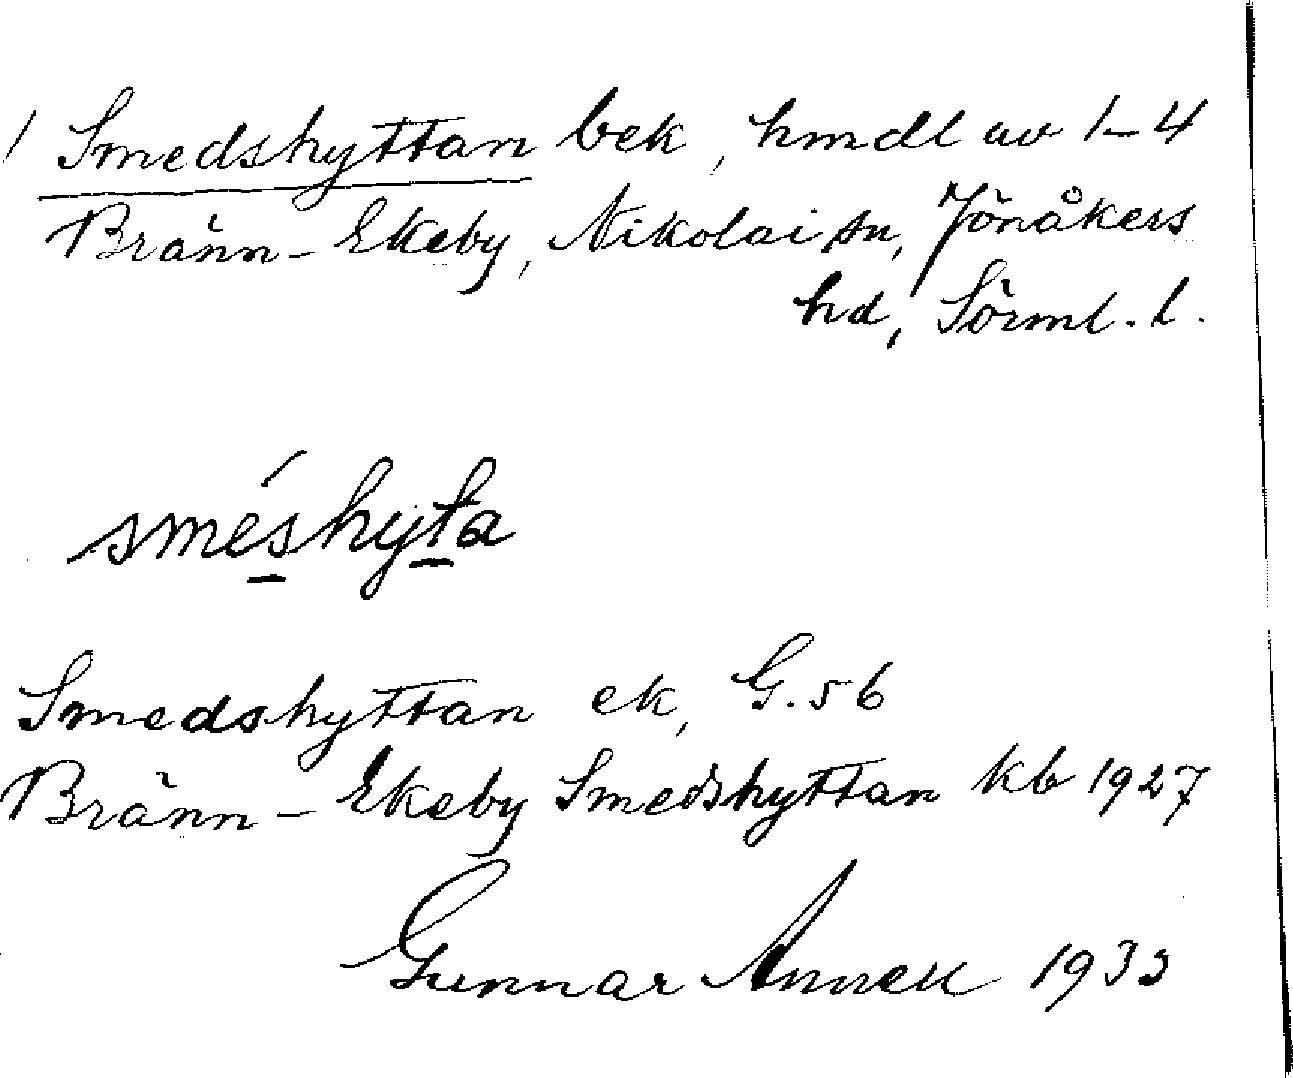 / Smedshyttan bek, hmdl av 1–4
Bränn-Ekeby, Nikolai sn, Jönåkers
hd, Sörml. l.
sméshyta
Smedshyttan ek, G. 56
Bränn-Ekeby Smedshyttan kb 1927
Gunnar Annell 1933